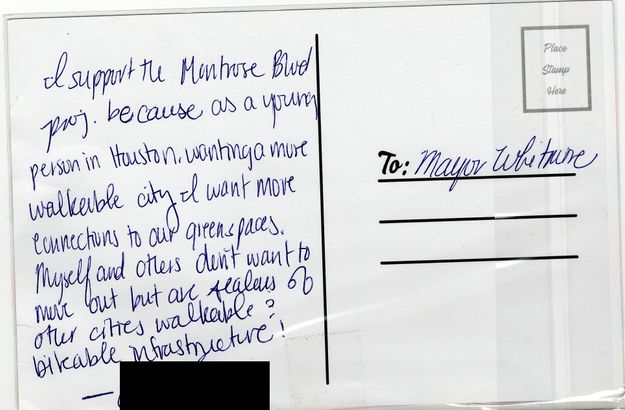 I support the Montrose Blvd
proj. because as a young
person in Houston, wanting a more
walkable city I want more
connections to our greenspaces.
Myself and others don't want to
move out but are jealous of
other cities walkable &
bikeable infrastructure!
—
Place
Stamp
Here
To: Mayor Whitmire